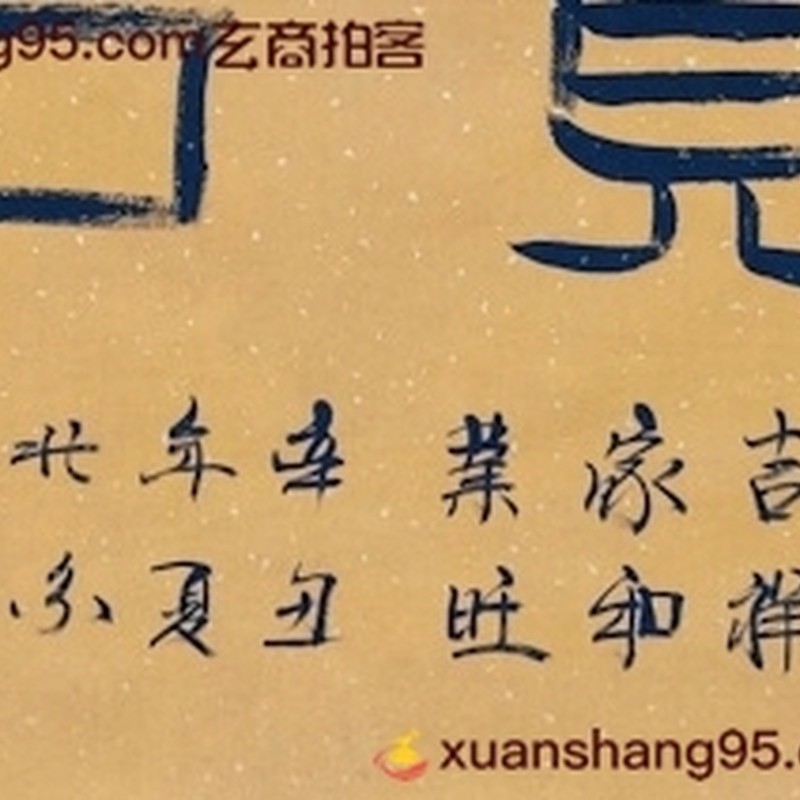 g95.com玄商拍客
吉祥
家和
業旺
辛丑
年夏
北京
xuanshang95.c